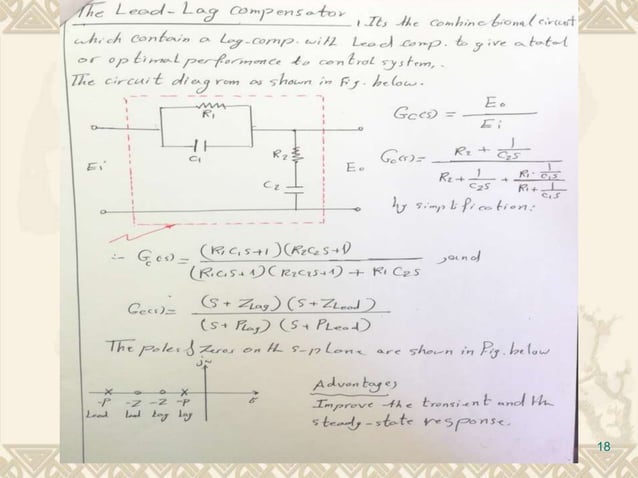 The Lead-Lag Compensator, Its the combinectional circuit
which contain a Lag-comp. with Lead comp. to give a total
or optimal performance to control system,.
The circuit diagram as shown in Fig. below.
R1
C1
R2
C2
Ei
Eo
Gc(s) = Eo / Ei
Gc(s) = (R2 + 1/C2S) / (R2 + 1/C2S + (R1 · 1/C1S)/(R1 + 1/C1S))
by simplification:
∴ Gc(s) = (R1C1S+1)(R2C2S+1) / (R1C1S+1)(R2C2S+1) + R1C2S , and
Gc(s) = (S + ZLag)(S + ZLead) / (S + PLag)(S + PLead)
The poles & zeros on the s-plane are shown in Fig. below
jw
-P -Z -Z -P σ
Lead Lead Lag Lag
Advantages
Improve the transient and the
steady-state response.
18